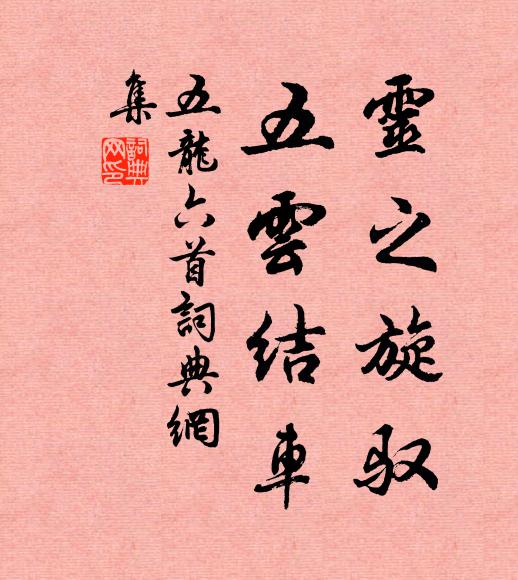 靈之旋馭
五雲結車
五龍六首詞典網
集
詞典網印